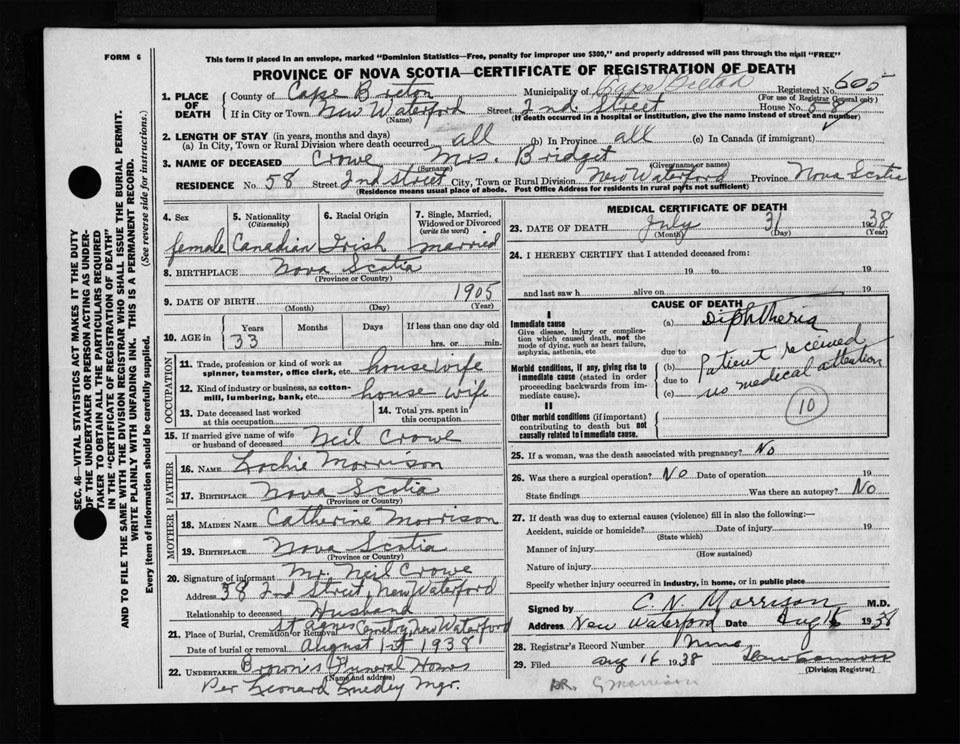 FORM 6
This form if placed in an envelope, marked "Dominion Statistics—Free, penalty for improper use $300," and properly addressed will pass through the mail "FREE"
PROVINCE OF NOVA SCOTIA—CERTIFICATE OF REGISTRATION OF DEATH
SEC. 46—VITAL STATISTICS ACT MAKES IT THE DUTY
OF THE UNDERTAKER OR PERSON ACTING AS UNDER-
TAKER TO OBTAIN ALL THE PARTICULARS REQUIRED
IN THE "CERTIFICATE OF REGISTRATION OF DEATH"
AND TO FILE THE SAME WITH THE DIVISION REGISTRAR WHO SHALL ISSUE THE BURIAL PERMIT.
WRITE PLAINLY WITH UNFADING INK. THIS IS A PERMANENT RECORD.
Every item of information should be carefully supplied. (See reverse side for instructions.)
1. PLACE OF DEATH
County of Cape Breton Municipality of Cape Breton Registered No. 605
(For use of Registrar General only)
If in City or Town New Waterford Street 2nd Street House No. 58
(Name) (If death occurred in a hospital or institution, give the name instead of street and number)
2. LENGTH OF STAY (in years, months and days)
(a) In City, Town or Rural Division where death occurred all (b) In Province all (c) In Canada (if immigrant)
3. NAME OF DECEASED Crowe Mrs. Bridget
(Surname) (Given name or names)
RESIDENCE No. 58 Street 2nd Street City, Town or Rural Division New Waterford Province Nova Scotia
(Residence means usual place of abode. Post Office Address for residents in rural parts not sufficient)
4. Sex 5. Nationality (Citizenship) 6. Racial Origin 7. Single, Married, Widowed or Divorced (write the word)
female Canadian Irish married
8. BIRTHPLACE Nova Scotia
(Province or Country)
9. DATE OF BIRTH 1905
(Month) (Day) (Year)
10. AGE in Years Months Days If less than one day old
33 hrs. or min.
OCCUPATION
11. Trade, profession or kind of work as spinner, teamster, office clerk, etc. housewife
12. Kind of industry or business, as cotton-mill, lumbering, bank, etc. house wife
13. Date deceased last worked at this occupation 14. Total yrs. spent in this occupation
15. If married give name of wife or husband of deceased Neil Crowe
FATHER
16. NAME Lochie Morrison
17. BIRTHPLACE Nova Scotia
(Province or Country)
MOTHER
18. MAIDEN NAME Catherine Morrison
19. BIRTHPLACE Nova Scotia
(Province or Country)
20. Signature of informant Mr. Neil Crowe
Address 58 2nd Street, New Waterford
Relationship to deceased Husband
21. Place of Burial, Cremation or Removal St Agnes Cemetry, New Waterford
Date of burial or removal August 1st 1938
22. UNDERTAKER Brown's Funeral Homes
(Name and address)
Per Leonard Mgr.
MEDICAL CERTIFICATE OF DEATH
23. DATE OF DEATH July 31 1938
(Month) (Day) (Year)
24. I HEREBY CERTIFY that I attended deceased from:
19 to 19
and last saw h alive on 19
CAUSE OF DEATH
I
Immediate cause
Give disease, injury or complication which caused death, not the mode of dying, such as heart failure, asphyxia, asthenia, etc
(a) Diphtheria
due to
Morbid conditions, if any, giving rise to immediate cause (stated in order proceeding backwards from immediate cause).
(b) Patient received
due to
(c) no medical attention
10
II
Other morbid conditions (if important) contributing to death but not causally related to immediate cause.
25. If a woman, was the death associated with pregnancy? No
26. Was there a surgical operation? No Date of operation 19
State findings Was there an autopsy? No
27. If death was due to external causes (violence) fill in also the following:—
Accident, suicide or homicide? Date of injury 19
(State which)
Manner of injury
(How sustained)
Nature of injury
Specify whether injury occurred in industry, in home, or in public place
Signed by C. N. Morrison M.D.
Address New Waterford Date Aug 1938
28. Registrar's Record Number
29. Filed Aug 16 1938
(Division Registrar)
DR. G Morrison